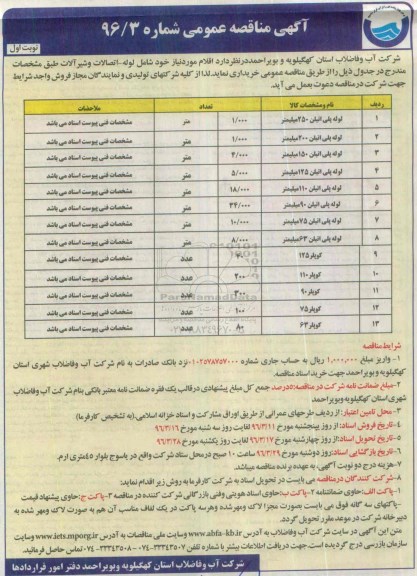 آگهی مناقصه عمومی شماره ۹۶/۳
نوبت اول
شرکت آب وفاضلاب استان کهگیلویه و بویراحمددرنظردارد اقلام موردنیاز خود شامل لوله-اتصالات وشیرآلات طبق مشخصات
مندرج در جدول ذیل را از طریق مناقصه عمومی خریداری نماید.لذا از کلیه شرکتهای تولیدی و نمایندگان مجاز فروش واجد شرایط
جهت شرکت در مناقصه دعوت بعمل می آید.
ردیف نام ومشخصات کالا تعداد ملاحضات
۱ لوله پلی اتیلن ۲۵۰میلیمتر ۱/۰۰۰ متر مشخصات فنی پیوست اسناد می باشد
۲ لوله پلی اتیلن ۲۰۰میلیمتر ۱/۰۰۰ متر مشخصات فنی پیوست اسناد می باشد
۳ لوله پلی اتیلن ۱۵۰میلیمتر ۴/۰۰۰ متر مشخصات فنی پیوست اسناد می باشد
۴ لوله پلی اتیلن ۱۲۵میلیمتر ۵/۰۰۰ متر مشخصات فنی پیوست اسناد می باشد
۵ لوله پلی اتیلن ۱۱۰میلیمتر ۱۸/۰۰۰ متر مشخصات فنی پیوست اسناد می باشد
۶ لوله پلی اتیلن ۹۰میلیمتر ۳۴/۰۰۰ متر مشخصات فنی پیوست اسناد می باشد
۷ لوله پلی اتیلن ۷۵میلیمتر ۱۰/۰۰۰ متر مشخصات فنی پیوست اسناد می باشد
۸ لوله پلی اتیلن ۶۳میلیمتر ۸/۰۰۰ متر مشخصات فنی پیوست اسناد می باشد
۹ کوپلر۱۲۵ عدد مشخصات فنی پیوست اسناد می باشد
۱۰ کوپلر۱۱۰ ۲۰۰ عدد مشخصات فنی پیوست اسناد می باشد
۱۱ کوپلر۹۰ ۳۰۰ عدد مشخصات فنی پیوست اسناد می باشد
۱۲ کوپلر۷۵ ۱۰۰ عدد مشخصات فنی پیوست اسناد می باشد
۱۳ کوپلر۶۳ ۸۰ عدد مشخصات فنی پیوست اسناد می باشد
شرایط مناقصه
۱- واریز مبلغ ۱,۰۰۰,۰۰۰ ریال به حساب جاری شماره ۰۱۰۲۵۷۸۷۵۷۰۰۰نزد بانک صادرات به نام شرکت آب وفاضلاب شهری استان
کهگیلویه و بویراحمد،جهت خرید اسناد مناقصه.
۲-مبلغ ضمانت نامه شرکت در مناقصه:۵درصد جمع کل مبلغ پیشنهادی درقالب یک فقره ضمانت نامه معتبر بانکی بنام شرکت آب وفاضلاب
شهری استان کهگیلویه وبویراحمد.
۳- محل تامین اعتبار: از ردیف طرحهای عمرانی از طریق اوراق مشارکت و اسناد خزانه اسلامی.(به تشخیص کارفرما)
۴-تاریخ فروش اسناد: از روز پنجشنبه مورخ ۹۶/۳/۱۱ لغایت روز سه شنبه مورخ ۹۶/۳/۱۶
۵-تاریخ تحویل اسناد:از روز چهارشنبه مورخ ۹۶/۳/۱۷ لغایت روز یکشنبه مورخ ۹۶/۳/۲۸
۶-تاریخ بازگشایی اسناد:روز دوشنبه مورخ ۹۶/۳/۲۹ ساعت ۱۰ صبح درمحل ستاد شرکت واقع در یاسوج بلوار ۴۵متری ارم.
۷-هزینه درج دو نوبت آگهی، به عهده برنده مناقصه میباشد.
۸-شرکت کنندگان درمناقصه می بایست در تحویل اسناد به شرکت کارفرما به روش زیر اقدام نماید:
۱-پاکت الف:حاوی ضمانتنامه ۲-پاکت ب:حاوی اسناد هویتی وفنی بازرگانی شرکت کننده در مناقصه ۳-پاکت ج:حاوی پیشنهاد قیمت
-پاکتهای سه گانه فوق می بایست بصورت مجزا لاک ومهرشده وهرسه پاکت در یک لفاف مناسب آن هم به صورت لاک ومهر شده به
دبیرخانه شرکت در موعد مقرر تحویل گردد.
متن این آگهی در سایت شرکت آب وفاضلاب به آدرس www.abfa-kb.ir وسایت ملی مناقصات به آدرس www.iets.mporg.ir وسایت
سازمان بازرسی درج گردیده است.جهت دریافت اطلاعات بیشتر با شماره تلفن ۳۳۳۴۳۵۰۷-۰۷۴ و ۳۳۳۴۳۵۰۸-۰۷۴ تماس حاصل فرمائید.
شرکت آب وفاضلاب استان کهگیلویه وبویراحمد دفتر امور قراردادها